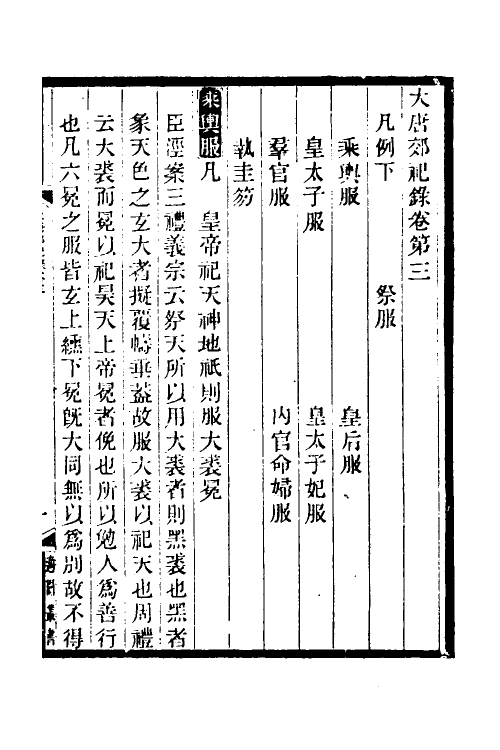 大唐郊祀錄卷第三
凡例下　祭服
乘輿服　皇后服
皇太子服　皇太子妃服
羣官服　內官命婦服
執圭笏
乘輿服凡　皇帝祀天神地祇則服大裘冕
臣涇案三禮義宗云祭天所以用大裘者則黑裘也黑者
象天色之玄大者擬覆幬垂葢故服大裘以祀天也周禮
云大裘而冕以祀昊天上帝冕者俛也所以勉人爲善行
也凡六冕之服皆玄上纁下冕旣大同無以爲別故不得